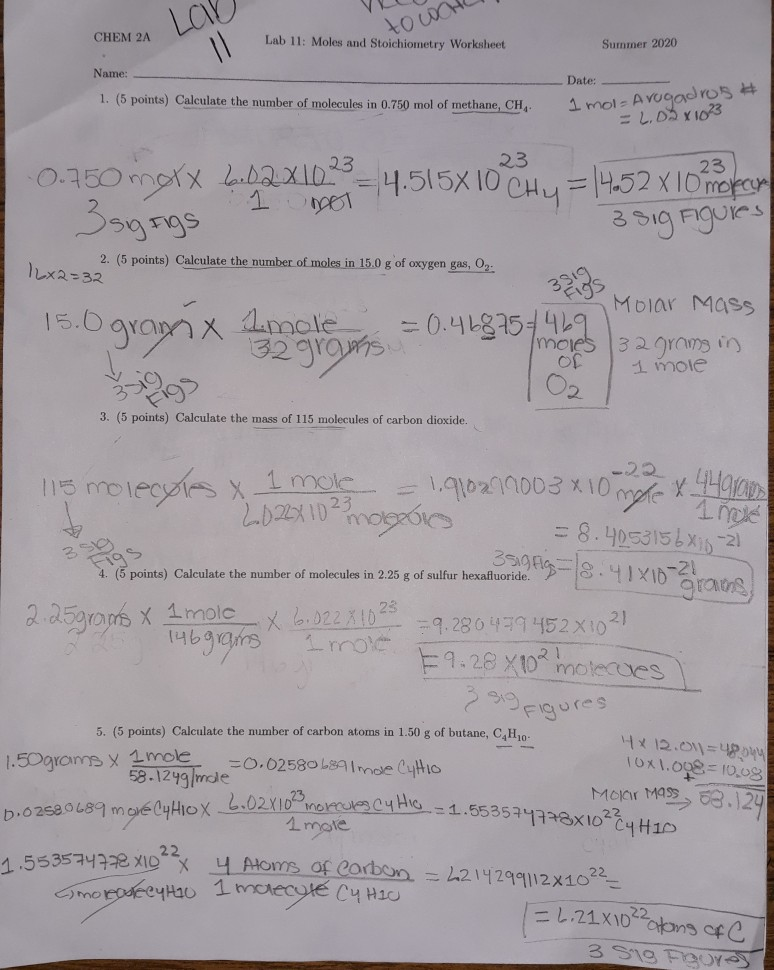 Lab
11
to watch
CHEM 2A Lab 11: Moles and Stoichiometry Worksheet Summer 2020
Name: Date:
1. (5 points) Calculate the number of molecules in 0.750 mol of methane, CH₄.
1 mol = Avogadros #
= 6.02 x 10²³
0.750 mol x 6.02 x 10²³ / 1 mol = 4.515 x 10²³ CH₄ = 4.52 x 10²³ molecules
3 sig Figs
3 sig Figures
2. (5 points) Calculate the number of moles in 15.0 g of oxygen gas, O₂.
16x2=32
15.0 gram x 1 mole / 32 grams = 0.46875 = .469 moles of O₂
3 sig Figs
3 sig Figs
Molar Mass
32 grams in
1 mole
3. (5 points) Calculate the mass of 115 molecules of carbon dioxide.
115 molecules x 1 mole / 6.022 x 10²³ molecules = 1.910299003 x 10⁻²² mole x 44 grams / 1 mole
3 sig Figs
= 8.4053156 x 10⁻²¹
3 sig Figs = 8.41 x 10⁻²¹ grams
4. (5 points) Calculate the number of molecules in 2.25 g of sulfur hexafluoride.
2.25 grams x 1 mole / 146 grams x 6.022 x 10²³ / 1 mole = 9.280479452 x 10²¹
= 9.28 x 10²¹ molecules
3 sig Figures
5. (5 points) Calculate the number of carbon atoms in 1.50 g of butane, C₄H₁₀.
4 x 12.011 = 48.044
10 x 1.008 = 10.08
+
Molar Mass → 58.124
1.50 grams x 1 mole / 58.124 g/mole = 0.025806891 mole C₄H₁₀
0.02580689 mole C₄H₁₀ x 6.02 x 10²³ molecules C₄H₁₀ / 1 mole = 1.553574778 x 10²² C₄H₁₀
1.553574778 x 10²² molecule C₄H₁₀ x 4 Atoms of Carbon / 1 molecule C₄H₁₀ = 6.214299112 x 10²² =
= 6.21 x 10²² atoms of C
3 Sig Figures